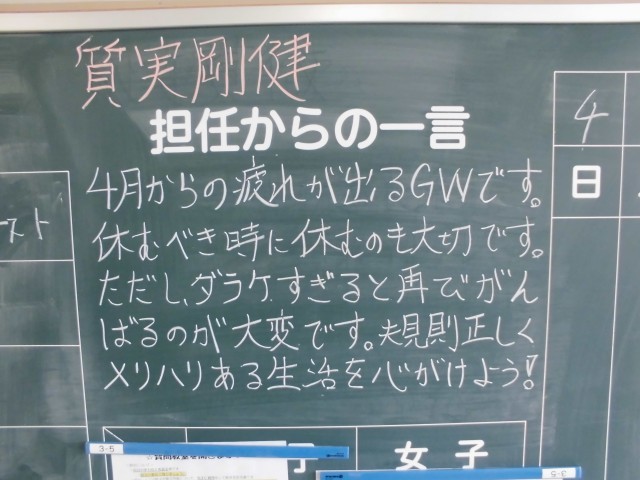 質実剛健
担任からの一言
4月からの疲れが出るGWです。
休むべき時に休むのも大切です。
ただし、ダラケすぎると再びがん
ばるのが大変です。規則正しく
メリハリある生活を心がけよう!
4
日
スト
3-5
女子
3-5